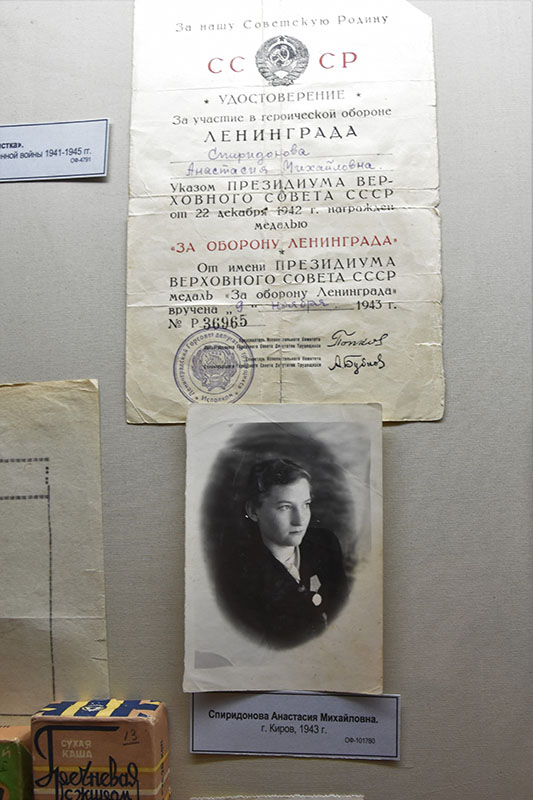 За нашу Советскую Родину
СССР
★ УДОСТОВЕРЕНИЕ ★
За участие в героической обороне
ЛЕНИНГРАДА
Спиридонова
Анастасия Михайловна
Указом ПРЕЗИДИУМА ВЕР-
ХОВНОГО СОВЕТА СССР
от 22 декабря 1942 г. награжден
медалью
«ЗА ОБОРОНУ ЛЕНИНГРАДА»
От имени ПРЕЗИДИУМА
ВЕРХОВНОГО СОВЕТА СССР
медаль «За оборону Ленинграда»
вручена „9" ноября 1943 г.
№ Р 36965
Председатель Исполнительного Комитета
Ленинградского Городского Совета Депутатов Трудящихся
Попков
Секретарь Исполнительного Комитета
Ленинградского Городского Совета Депутатов Трудящихся
А Бубнов
Ленинградский Горсовет депутатов трудящихся
★ Исполком ★
стка».
нной войны 1941-1945 гг.
ОФ-4791
Спиридонова Анастасия Михайловна.
г. Киров, 1943 г.
ОФ-101780
СУХАЯ
КАША
13
Гречневая
с жиром